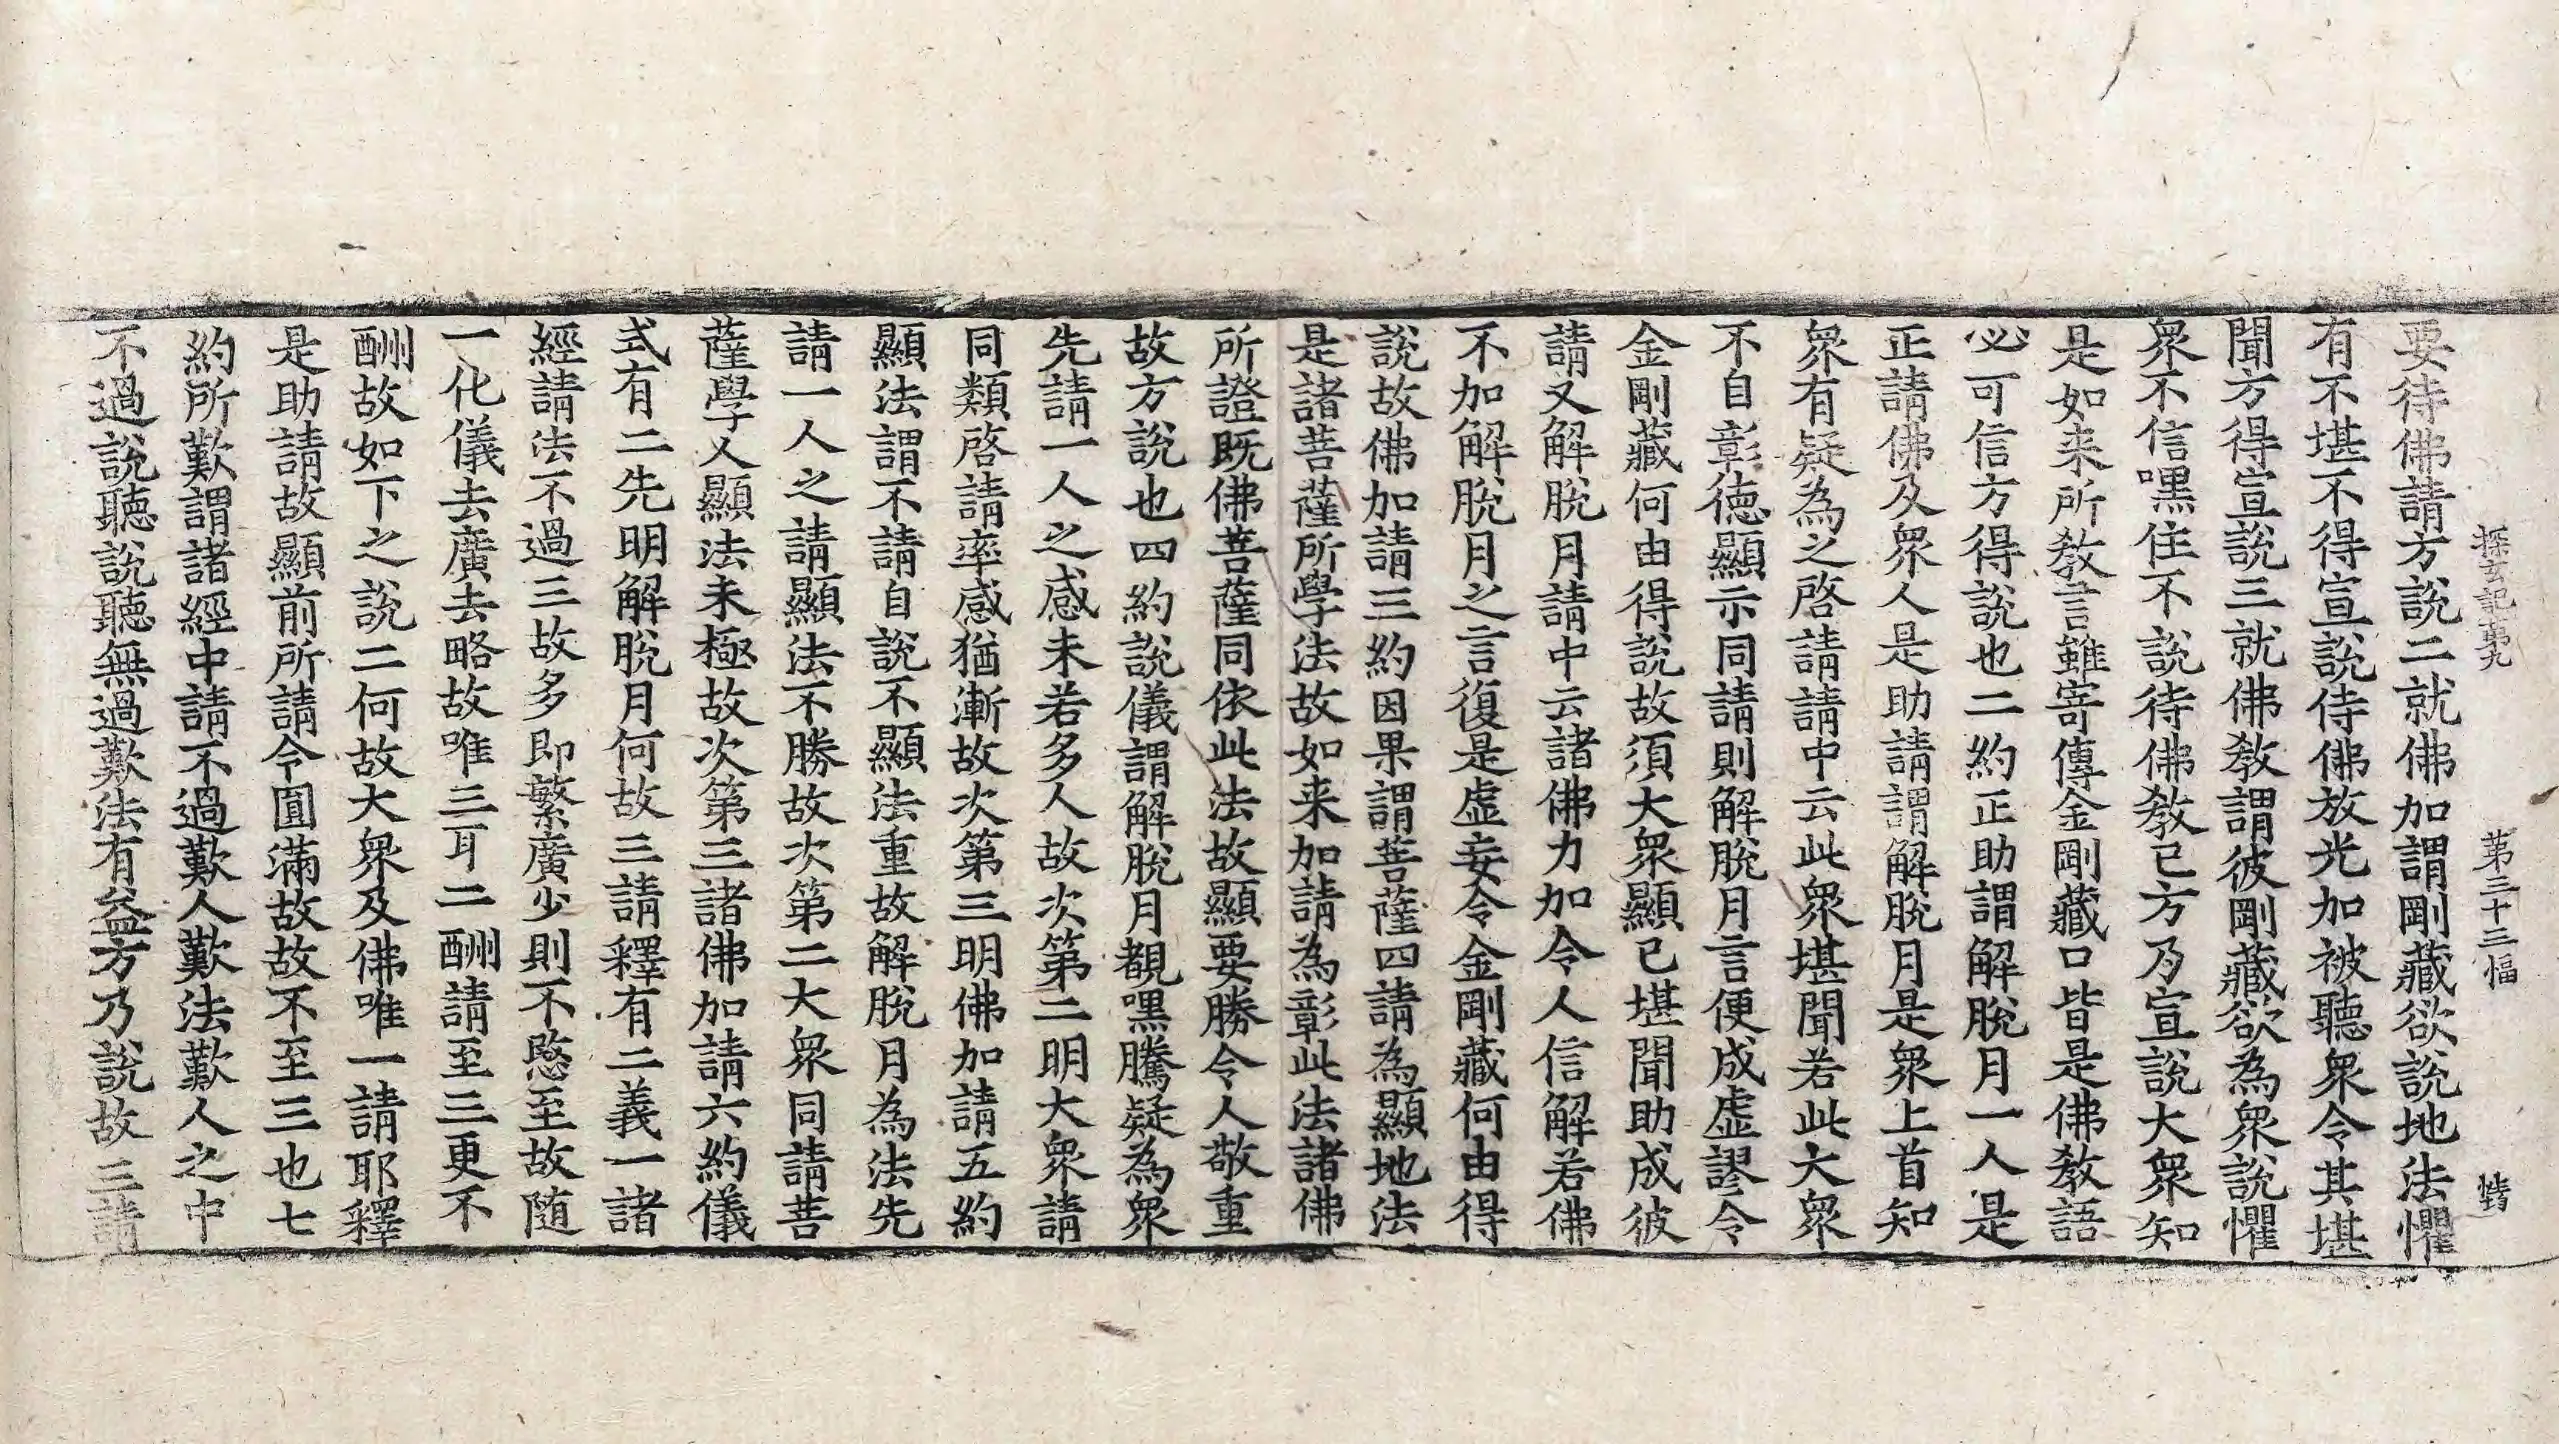 探玄記苐九 苐三十三幅 𢜔
要待佛請方說二就佛加謂剛藏欲說地法懼
有不堪不得宣說待佛放光加被聽衆令其堪
聞方得宣說三就佛教謂彼剛藏欲為衆說懼
衆不信嘿住不說待佛教已方乃宣說大衆知
是如来所教言雖寄傳金剛藏口皆是佛教語
必可信方得說也二約正助謂解脫月一人是
正請佛及衆人是助請謂解脫月是衆上首知
衆有疑為之啓請請中云此衆堪聞若此大衆
不自彰德顯示同請則解脫月言便成虛謬令
金剛藏何由得說故須大衆顯已堪聞助成彼
請又解脫月請中云諸佛力加令人信解若佛
不加解脫月之言復是虛妄令金剛藏何由得
說故佛加請三約因果謂菩薩四請為顯地法
是諸菩薩所學法故如来加請為彰此法諸佛
所證既佛菩薩同依此法故顯要勝令人敬重
故方說也四約說儀謂解脫月覩嘿騰疑為衆
先請一人之感未若多人故次第二明大衆請
同類啓請率感猶漸故次第三明佛加請五約
顯法謂不請自說不顯法重故解脫月為法先
請一人之請顯法不勝故次第二大衆同請菩
薩學人顯法未極故次第三諸佛加請六約儀
式有二先明解脫月何故三請釋有二義一諸
經請法不過三故多即繁廣少則不慇至故随
一化儀去廣去略故唯三耳二酬請至三更不
酬故如下之說二何故大衆及佛唯一請耶釋
是助請故顯前所請令圓滿故故不至三也七
約所歎謂諸經中請不過歎人歎法歎人之中
不過說聽說聽無過歎法有益方乃說故三請